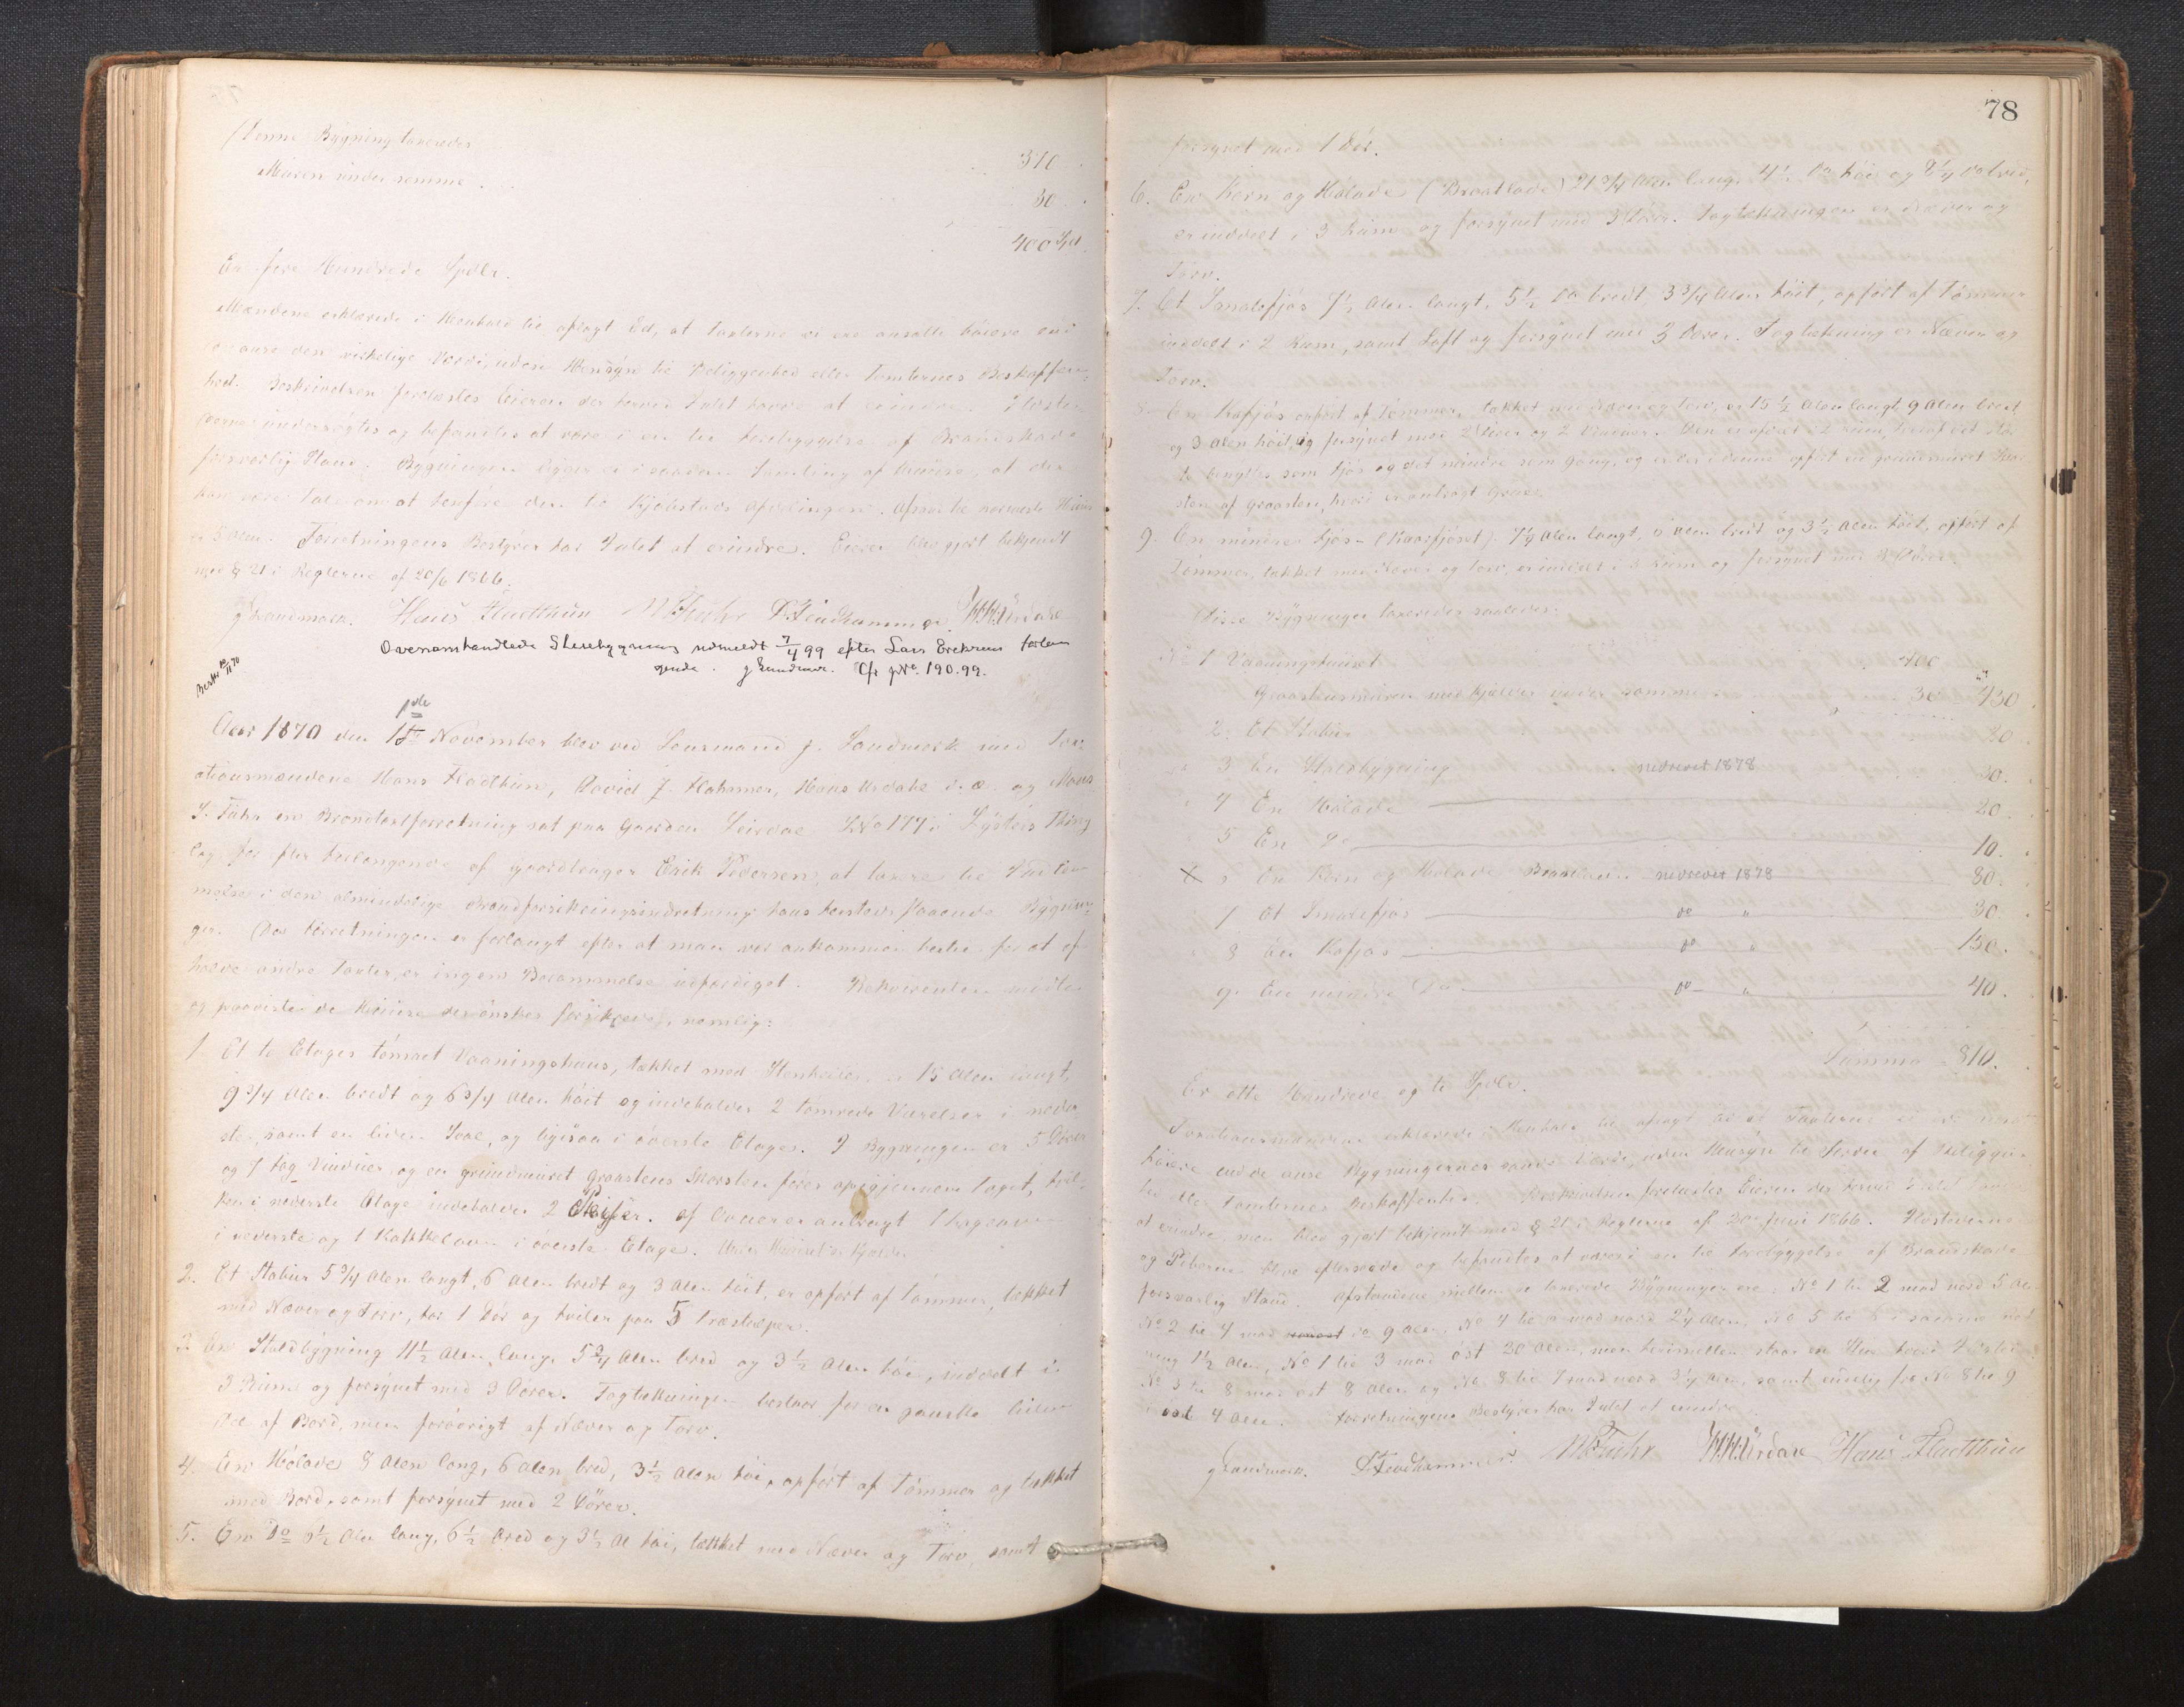 Denne Bygning taxeredes 370
Muren under samme 30
400 Spd
Er fire Hundrede Spdlr.
Mændene erklærede i Henhold til aflagt Ed, at Taxterne ei ere ansatte høiere end
de anse den virkelige Værdi, uden Hensyn til Beliggenhed eller Tomternes Beskaffen-
hed. Beskrivelsen forelæstes Eieren der herved Intet havde at erindre. Ildste-
derne undersøgtes og befandtes at være i en til Forebyggelse af Brandskade
forsvarlig Stand. Bygningen ligger ei i saadan Samling af Huuse, at der
kan være Tale om at henføre den til Kjøbstads Afdelingen. Afstand til nærmeste Huus
er 5 Alen. Forretningens Bestyrer har Intet at erindre. Eieren blev gjort bekjendt
med § 21 i Reglerne af 20/6 1866.
J Sandmork. Hans Fladthun M Fuhr D Flahammer HH Urdahl
Ovenomhandlede Steenbygning udmeldt 7/4 99 efter Lars Eriksens forlan
gende. J Sandmo. Cfr pNo. 190.99.
Aar 1870 den 1ste November blev ved Lensmand J. Sandmork med Tax-
ationsmændene Hans Fladthun, David J. Flahamer, Hans Urdahl d. æ. og Mons
I. Fuhr en Brandtaxtforretning sat paa Gaarden Leirdal LNo 177 i Lysters Thing
lag for efter Forlangende af Gaardbruger Erik Pedersen, at taxere til Indlem
melse i den almindelige Brandforsikringsindretning hans herstedsstaaende Bygnin-
ger. Da Forretningen er forlangt efter at man var ankommen hertil for at af-
holde andre Taxter, er ingen Berammelse udfærdiget. Rekvirenten mødte
og paaviste de Huuse der ønskes forsikrede, nemlig:
1 Et to Etages tømret Vaaningshuus, tækket med Steenheller, er 15 Alen langt,
9 3/4 Alen bredt og 6 3/4 Alen høit og indeholder 2 tømrede Værelser i neder-
ste, samt en liden Sval, og ligesaa i øverste Etage. I Bygningen er 5 Døre
og 7 fag Vinduer og en grundmuret Graasteens Skorsten fører op igjennem Taget, hvil-
ken i nederste Etage indeholder 2 Peiser. af Ovne er anbragt 1
i nederste og 1 Kakkelovn i øverste Etage. Under Huuset er Kjælder
2. Et Stabur 5 3/4 Alen langt, 6 Alen bredt og 3 Alen høit, er opført af Tømmer, tækket
med Næver og Torv, har 1 Dør og hviler paa 5 Træstolper.
3. En Staldbygning 11 1/2 Alen lang, 5 3/4 Alen bred og 3 1/2 Alen høi, inddelt i
3 Rum og forsynet med 3 Dører. Tagtækningen bestaar for en ganske liden
Del af Bord, men forøvrigt af Næver og Torv.
4. En Hølade 8 Alen lang, 6 Alen bred, 3 1/2 Alen høi, opført af Tømmer og tækket
med Bord, samt forsynet med 2 Dører.
5. En Do 6 1/2 Alen lang, 6 1/2 bred og 3 1/2 Al høi, tækket med Næver og Torv, samt
78
forsynet med 1 Dør.
6. En Korn og Hølade (Braatlade) 21 3/4 Alen lang, 4 1/2 Do høi og 8 1/4 do bred,
er inddelt i 3 Rum og forsynet med 3 Døre. Tagtækningen er Næver og
Torv.
7. Et Smalefjøs 7 1/2 Alen langt, 5 1/2 Do bredt, 3 3/4 Alen høit, opført af Tømmer
inddelt i 2 Rum, samt Loft og forsynet med 3 Dører. Tagtækning er Næver og
Torv.
8. En Kofjøs opført af Tømmer, tækket med Næver og Torv, er 15 1/2 Alen langt, 9 Alen bredt
og 3 Alen høit, og forsynet med 2 Dører og 2 Vinduer. Den er afdelt i 2 Rum, hvoraf det stør
ste benyttes som Fjøs og det mindre som Gang, og er der i denne opført en grundmuret Skor
sten af Graasten, hvori er anbragt Grue.
9. En mindre Fjøs (Kaarfjøset) 7 1/4 Alen langt, 6 Alen bredt og 3 1/2 Alen høit, opført af
Tømmer, tækket med Næver og Torv, er inddelt i 3 Rum og forsynet med 3 Dører.
Disse Bygninger taxeredes saaledes:
No 1 Vaaningshuset 400
Graasteensmuren med Kjælder under samme 30 430
2. Et Stabur 20
3 En Staldbygning nedrevet 1878 30.
4 En Hølade 20.
5 En Do 10.
X 6 En Korn og Hølade Braatladen nedrevet 1878 80.
7 Et Smalefjøs do " 30.
8 En Kofjøs do " 150.
9. En mindre Do do " 40.
Summa 810.
Er otte Hundrede og ti Spdlr.
Taxationsmændene erklærede i Henhold til aflagt Ed at Taxterne ei ere ansat
høiere end de anse Bygningernes sande Værdi, uden Hensyn til Værdi af Beliggen-
hed eller Tomternes Beskaffenhed. Beskrivelsen forelæstes Eieren der herved Intet havde
at erindre, men blev gjort bekjendt med § 21 i Reglerne af 20de Juni 1866. Ildstederne
og Piberne bleve efterseede og befandtes at være i en til Forebyggelse af Brandskade
forsvarlig Stand. Afstandene mellem de taxerede Bygninger ere: No 1 til 2 mod nord 5 Alen
No 2 til 4 mod do 9 Alen, No 4 til 5 mod nord 2 1/4 Alen, No 5 til 6 i samme Ret
ning 1 1/2 Alen, No 1 til 3 mod øst 20 Alen, men herimellem staar et Huus hvori Ildsted
No 3 til 8 mod øst 8 Alen og No 8 til 7 mod nord 3 1/4 Alen, samt endelig fra No 8 til 9
i øst 4 Alen. Forretningens Bestyrer har Intet at erindre.
J Sandmork. D Flahammer M Fuhr HH Urdahl Hans Fladthun